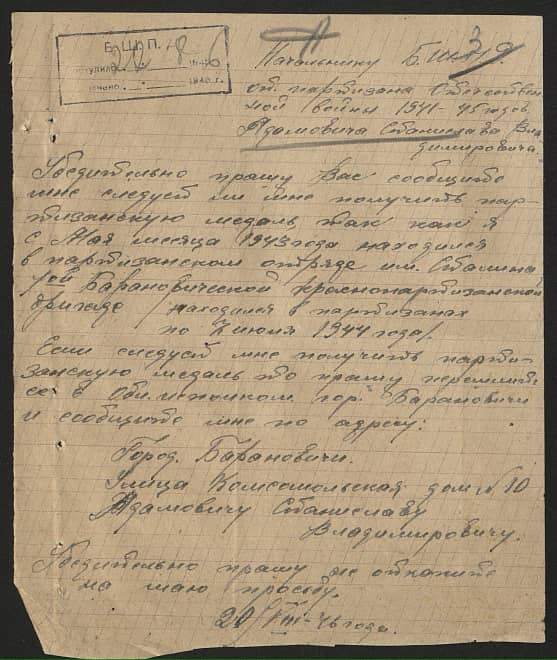 Б.Ш.П.Д.
1946 г.
Начальнику Б.Ш.П.Д
от партизана Отечествен-
ной войны 1941-45 годов
Адамовича Станислава Вла
димировича.
Убедительно прашу Вас сообщите
мне следует ли мне получить пар-
тизанскую медаль, так как я
с Мая месяца 1943 года находился
в партизанском отряде им. Сталина
Барановической краснопартизанской
бригаде /находился в партизанах
по 7 июля 1944 года/.
Если следует мне получить парти-
занскую медаль то прашу перешлите
её в Облисполком гор. Барановичи
и сообщите мне по адресу:
Город. Барановичи.
Улица Комсомольская дом № 10
Адамовичу Станиславу
Владимировичу.
Убедительно прашу не откажите
на маю прозьбу.
20/VIII-46 года.